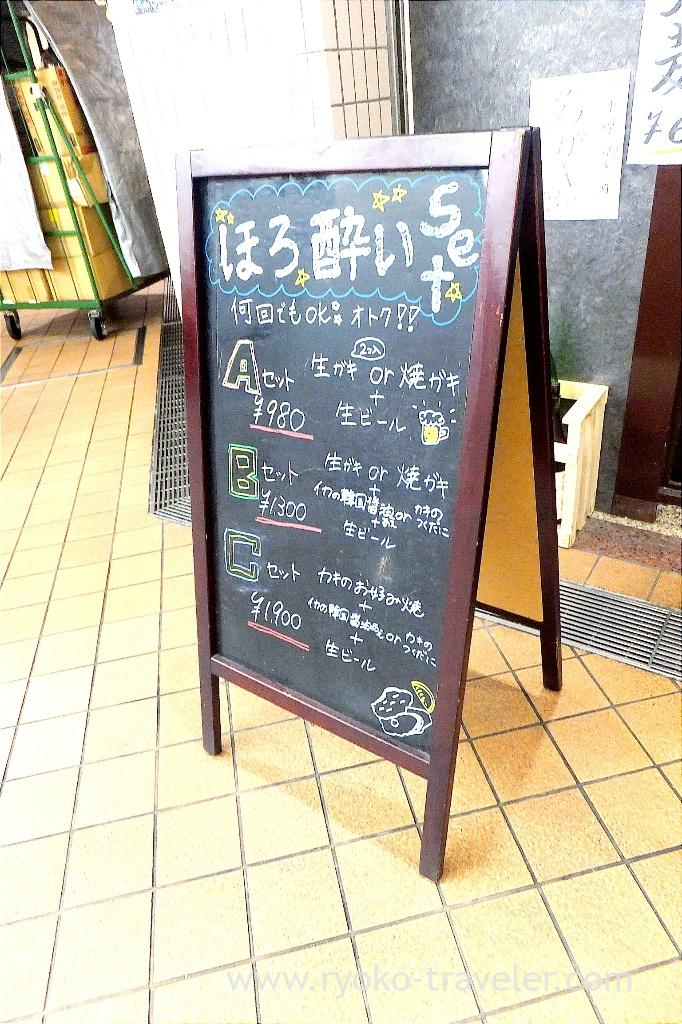 ほろ酔いSet
何回でもOK!! オトク!!
Aセット 生ガキ or 焼ガキ
2コ入
+
¥980 生ビール
Bセット 生ガキ or 焼ガキ
+
¥1300 イカの韓国醤油 or カキのつくだに
+
生ビール
Cセット カキのお好み焼
+
¥1,900 イカの韓国醤油 or カキのつくだに
+
生ビール
www.ryoko-traveler.com